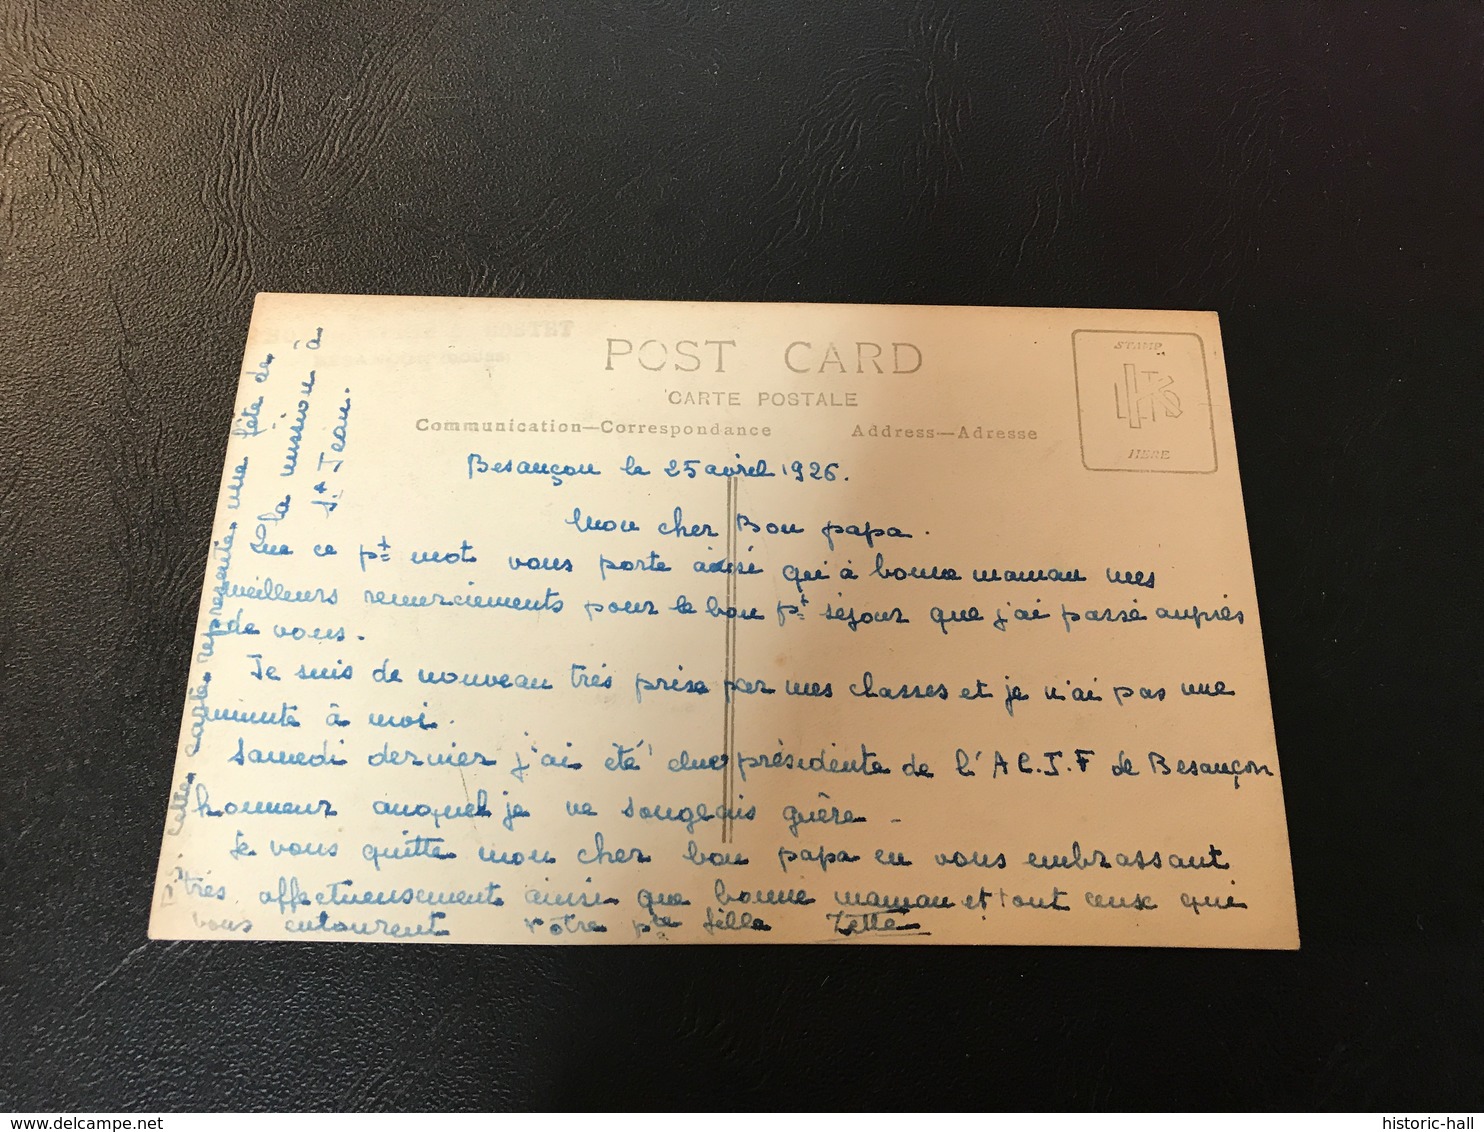 POST CARD
CARTE POSTALE
Communication—Correspondance
Address—Adresse
STAMP
HERE
Besançon le 25 avril 1926.
Mon cher Bon papa.
Que ce pt mot vous porte ainsi qu'à bonne maman mes
meilleurs remerciements pour le bon pt séjour que j'ai passé auprès
de vous.
Je suis de nouveau très prise par mes classes et je n'ai pas une
minute à moi.
Samedi dernier j'ai été élue présidente de l'A C.J.F de Besançon
honneur auquel je ne songeais guère -
Je vous quitte mon cher bon papa en vous embrassant
très affectueusement ainsi que bonne maman et tout ceux qui
vous entourent votre pte fille Zette
P.S. Cette carte représente une fête de
la mission à
St Jean.
historic-hall